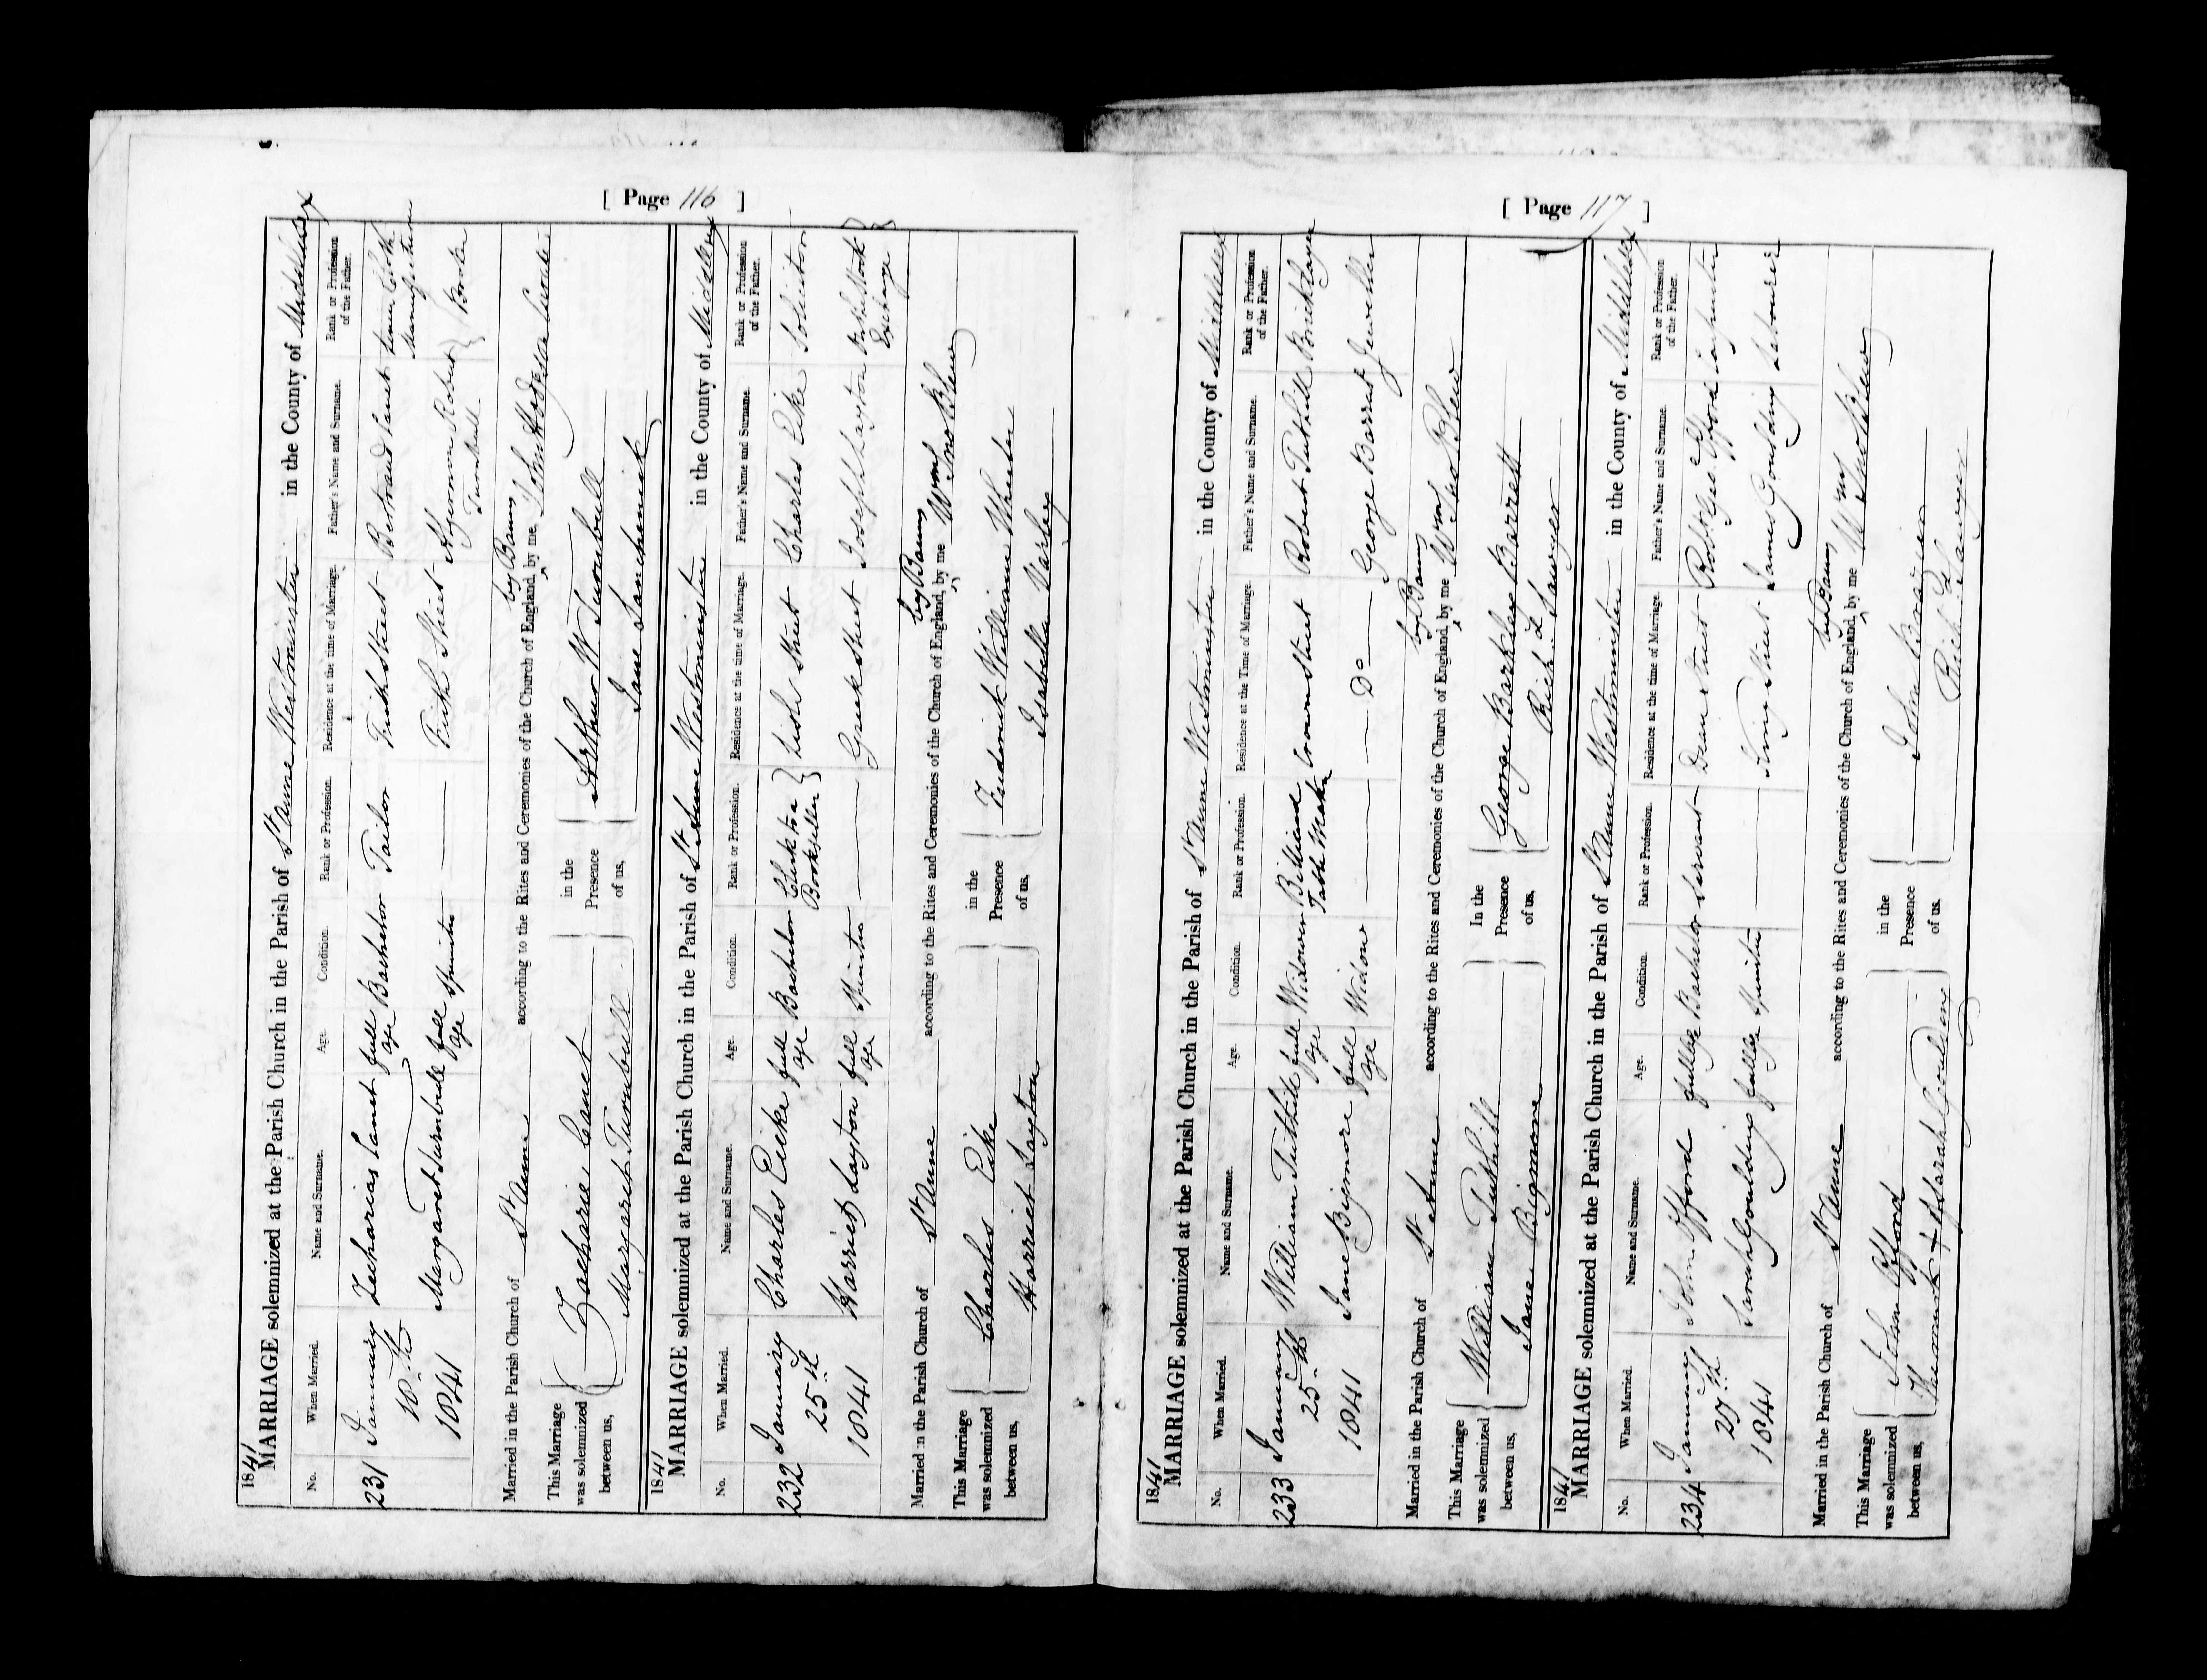 [ Page 116 ]
1841
MARRIAGE solemnized at the Parish Church in the Parish of St Anne Westminster in the County of Middlesex
No. When Married. Name and Surname. Age. Condition. Rank or Profession. Residence at the time of Marriage. Father's Name and Surname. Rank or Profession of the Father.
231 January 18th 1841 Zecharias Canet full age Bachelor Tailor Frith Street Bertrand Canet Linen Cloth Manufacturer
Margaret Turnbull full age Spinster — Frith Street Robert Turnbull
Married in the Parish Church of St Anne according to the Rites and Ceremonies of the Church of England, by Banns by me, John Hodgson Curate
This Marriage was solemnized between us, Zacharie Canet Margaret Turnbull in the Presence of us, Arthur W Turnbull Jane
1841
MARRIAGE solemnized at the Parish Church in the Parish of St Anne Westminster in the County of Middlesex
No. When Married. Name and Surname. Age. Condition. Rank or Profession. Residence at the time of Marriage. Father's Name and Surname. Rank or Profession of the Father.
232 January 25th 1841 Charles Eike full age Bachelor Clerk to a Bookseller Lisle Street Charles Eike Solicitor
Harriet Layton full age Spinster — Greek Street Joseph Layton Stock Exchange
Married in the Parish Church of St Anne according to the Rites and Ceremonies of the Church of England, by Banns by me Wm Jno Blew
This Marriage was solemnized between us, Charles Eike Harriet Layton in the Presence of us, Frederick William Wheeler Isabella Varley
[ Page 117 ]
1841
MARRIAGE solemnized at the Parish Church in the Parish of St Anne Westminster in the County of Middlesex
No. When Married. Name and Surname. Age. Condition. Rank or Profession. Residence at the Time of Marriage. Father's Name and Surname. Rank or Profession of the Father.
233 January 25th 1841 William Tuthill full age Widower Billiard Table Maker Crown Street Robert Tuthill Bricklayer
Jane Bigmore full age Widow — Do — George Barrett Jeweller
Married in the Parish Church of St Anne according to the Rites and Ceremonies of the Church of England, by Banns by me Wm Jno Blew
This Marriage was solemnized between us, William Tuthill Jane Bigmore In the Presence of us, George Barkley Barrett Rich. L Sawyer
1841
MARRIAGE solemnized at the Parish Church in the Parish of St Anne Westminster in the County of Middlesex
No. When Married. Name and Surname. Age. Condition. Rank or Profession. Residence at the time of Marriage. Father's Name and Surname. Rank or Profession of the Father.
234 January 27th 1841 John Offord full age Bachelor Servant Dean Street Offord Carpenter
Sarah Goulding full age Spinster — King Street James Goulding Labourer
Married in the Parish Church of St Anne according to the Rites and Ceremonies of the Church of England, by Banns by me Wm Jno Blew
This Marriage was solemnized between us, John Offord The mark + of Sarah Goulding in the Presence of us, John Brazier Rich. L Sawyer